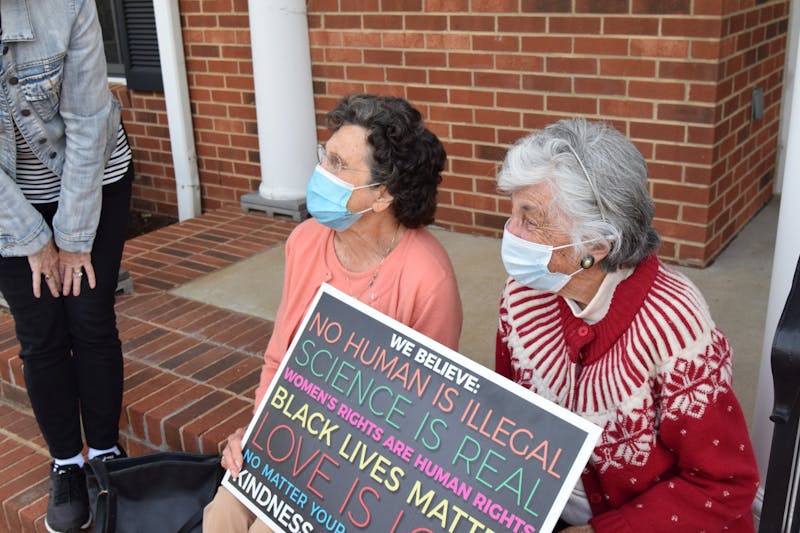 WE BELIEVE:
NO HUMAN IS ILLEGAL
SCIENCE IS REAL
WOMEN'S RIGHTS ARE HUMAN RIGHTS
BLACK LIVES MATTE
LOVE IS LO
NO MATTER YOUR
KINDNESS